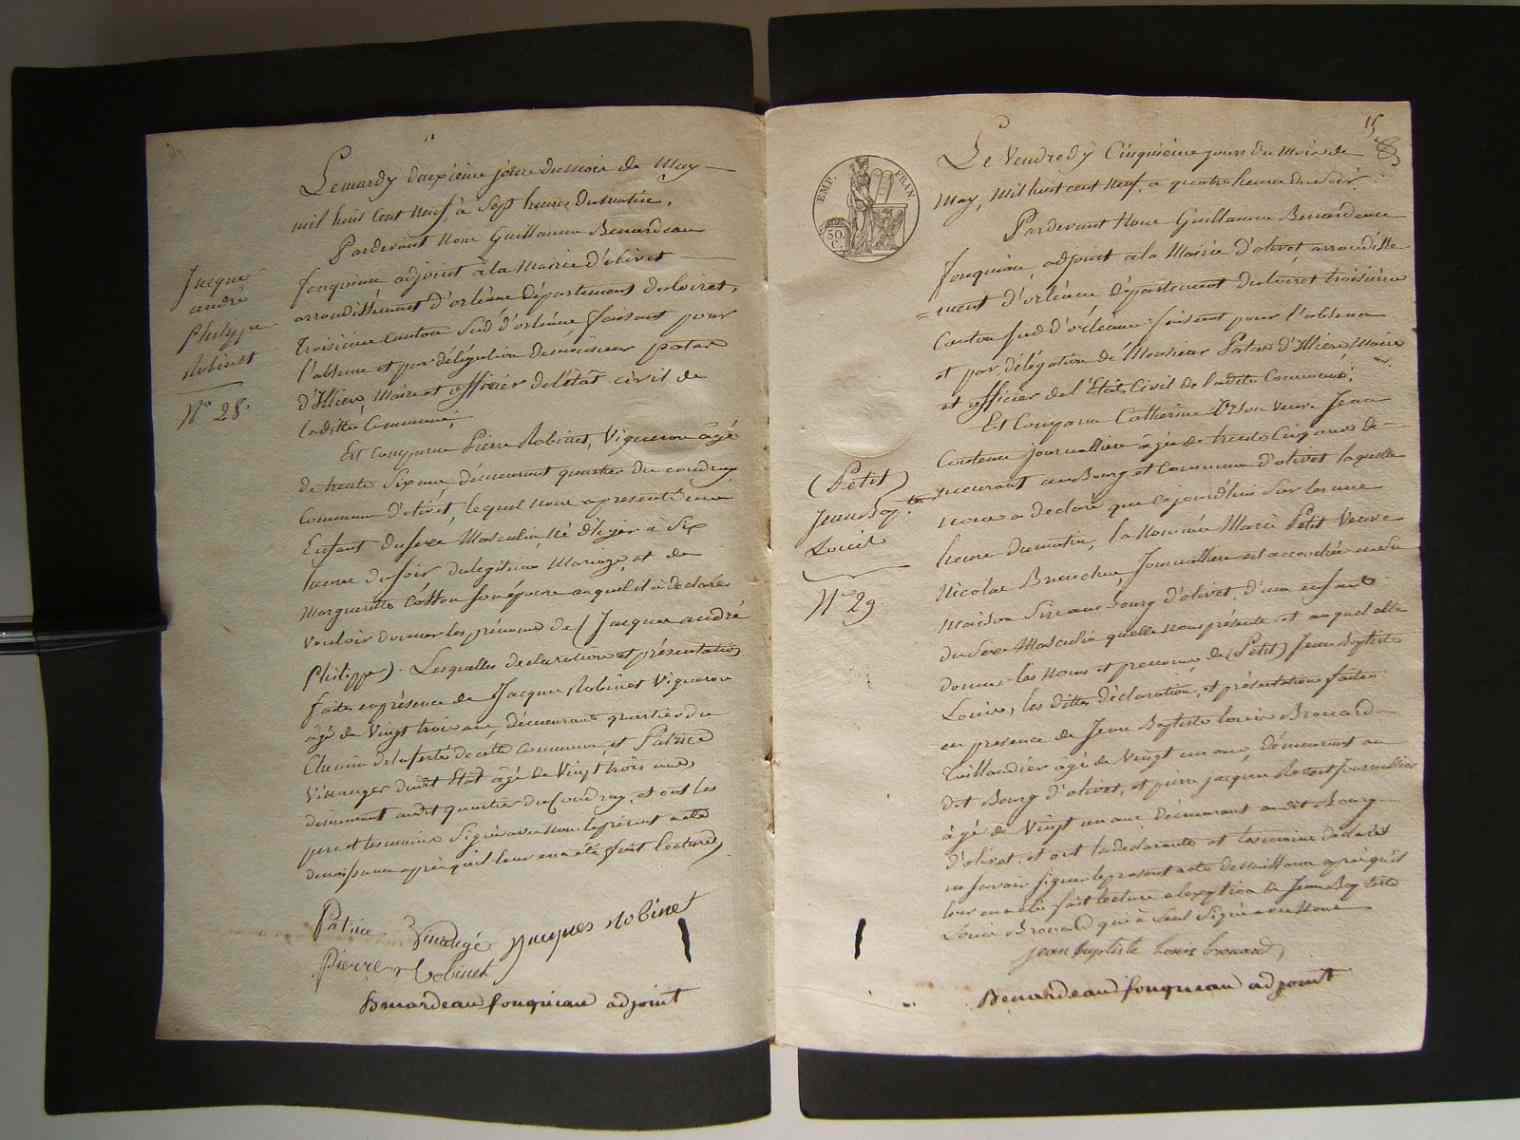 Le mardy deuxieme jour du mois de May
mil huit cent neuf à Sept heures du matin,
Pardevant Nous Guillaume Benardeau
fouqueau adjoint à la Mairie d'olivet
arrondissement d'orléans Département du loiret,
troisieme canton Sud d'orléans faisant pour
l'absence et par délégation de monsieur patas
d'Illiers, Maire et officier de l'état civil de
laditte Commune,
Est comparu Pierre Robinet, Vigneron âgé
de trente Six ans demeurant quartier du coudray
commune d'olivet, lequel nous a presenté un
Enfant du sexe Masculin Né d'hyer à Six
heures du soir du légitime Mariage et de
Marguerite Cotton son épouse auquel il a déclaré
vouloir donner les prénoms de (Jacques andré
Philippe). Lesquelles declaration et présentation
faites en présence de Jacques Robinet Vigneron
âgé de Vingt trois ans, demeurant quartier du
Chemin de la ferté de cette commune, et Patrice
dudit Etat âgé de Vingt trois ans
demeurant audit quartier du Coudray, et ont les
pere et temoins Signé avec nous le présent acte
de naissance après qu'il leur en a été fait lecture,
Patrice jacques Robinet
Pierre Robinet
Benardeau fouqueau adjoint
Jacque
andré
Philippe
Robinet
N° 28.
15
EMP. FRAN
50
C.
Le Vendredy Cinquieme jour du Mois de
May, Mil huit cent Neuf, a quatre heures du Soir
Pardevant Nous Guillaume Benardeau
fouqueau, adjoint à la Mairie d'olivet arrondisse
= ment d'orléans Département du loiret troisieme
Canton sud d'orléans faisant pour l'absence
et par délégation de Monsieur Patas d'Illiers Maire
et officier de l'Etat Civil de laditte Commune,
Est Comparu Catherine veuve Jean
journalliere âgée de trente Cinq ans de
meurant au Bourg et Commune d'olivet laquelle
nous a declaré que cejourd'hui Sur les une
heure du matin, la Nommée Marie Petit Veuve
Nicolas journalliere est accouchée en sa
maison Sise au bourg d'olivet, d'un enfant
du Sexe Masculin quelle nous présente et auquel elle
donne les noms et prenoms de (Petit) Jean Baptiste
Louis, les dittes déclaration, et présentation faites
en presence de Jean Baptiste louis Brouard
Taillandier âgé de Vingt un ans, demeurant au
dit Bourg d'olivet, et pierre jacques Journallier
âgé de Vingt un ans demeurant au dit Bourg
d'olivet, et ont la declarante et temoins declaré
ne savoir signer le present acte de naissance après qu'il
leur en a été fait lecture a l'exception de Jean Baptiste
Louis Brouard qui a Seul Signé avec Nous
jean baptiste louis brouard
Benardeau fouqueau adjoint
(Petit)
Jean Bap.te
Louis
N° 29